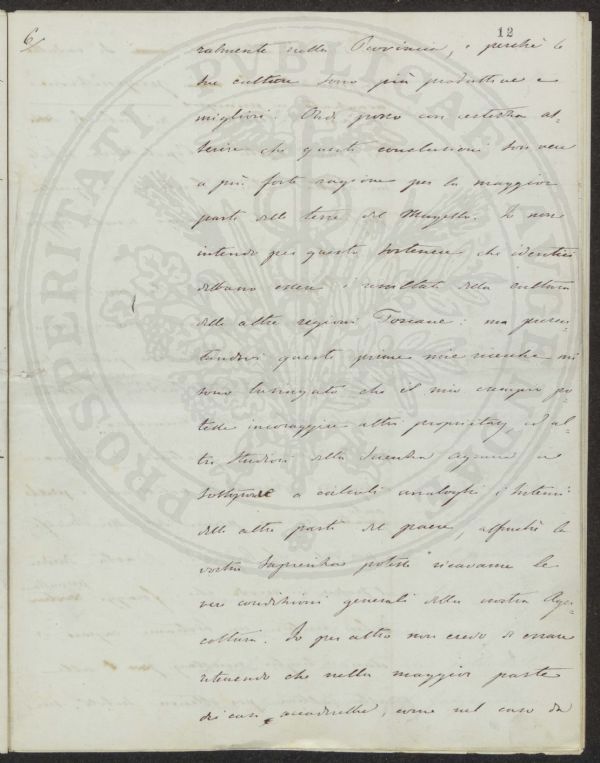 6/
12
ralmente nella Provincia, e perchè le
sue culture sono più produttive e
migliori. Onde posso con certezza as-
serire che queste conclusioni son vere
a più forte ragione per la maggior
parte delle terre del Mugello. Io non
intendo per questo sostenere che identici
debbano essere i resultati della cultura
delle altre regioni Toscane: ma presen-
tandovi queste prime mie ricerche mi
sono lusingato che il mio esempio po-
tesse incoraggire altri proprietarj ed al-
tri studiosi della Scienza agraria a
sottoporre a calcoli analoghi i sistemi
delle altre parti del paese, affinchè la
vostra Sapienza potesse ricavarne le
vere condizioni generali della nostra Agri-
coltura. Io per altro non credo di errare
ritenendo che nella maggior parte
dei casi accadrebbe, come nel caso da
PROSPERITATI PUBLICAE AUGENDAE